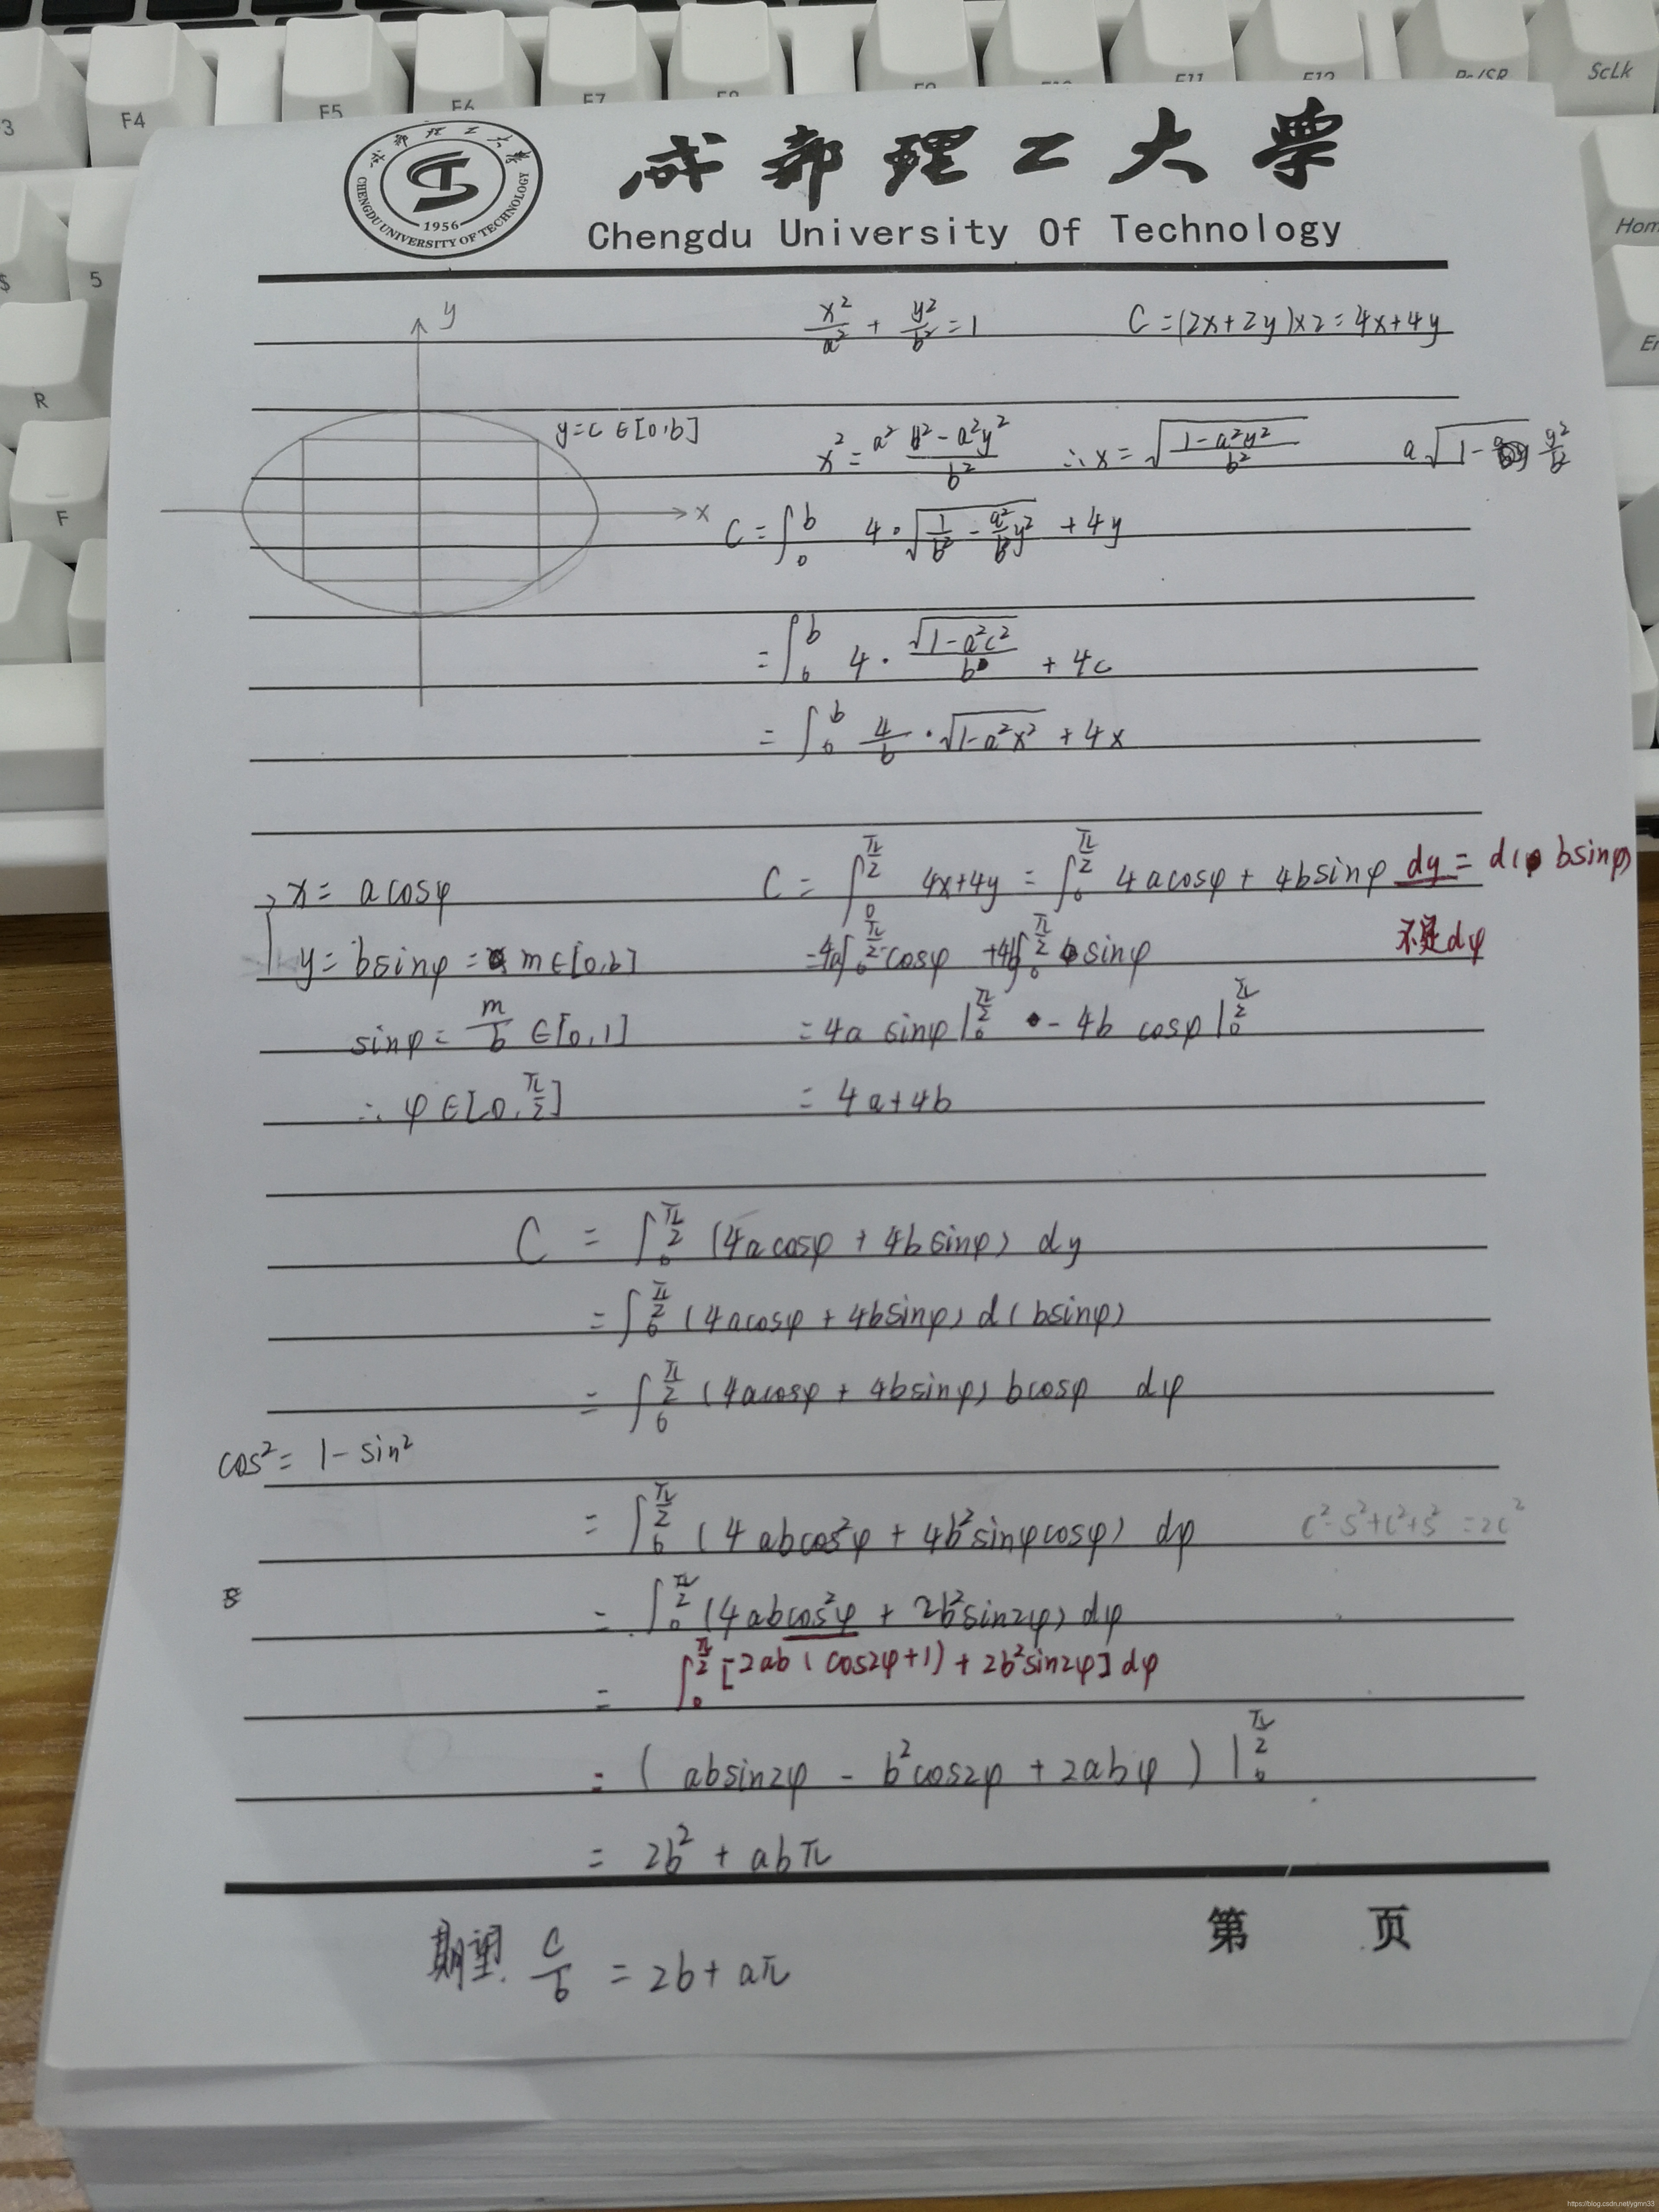 F3 F4 F5 F6 F7 F8 F9 F10 F11 F12 Pr/SR ScLk
$ 5 Home
R
F
成都理工大学
CHENGDU UNIVERSITY OF TECHNOLOGY
1956
成都理工大学
Chengdu University Of Technology
y
x²/a² + y²/b² = 1 C=(2x+2y)×2=4x+4y
y=c∈[0,b] x²= a² b²-a²y² / b² ∴x=√(1-a²y² / b²) a√1- y²/b²
x C=∫₀^b 4·√(1/b² - a²/b² y²) +4y
=∫₀^b 4· √(1-a²c²) / b +4c
=∫₀^b 4/b ·√(1-a²x²) +4x
x= acosφ C= ∫₀^(π/2) 4x+4y = ∫₀^(π/2) 4acosφ+ 4bsinφ dy = d( bsinφ)
y= bsinφ = m∈[0,b] =4a∫₀^(π/2) cosφ +4b∫₀^(π/2) sinφ 不是dφ
sinφ= m/b ∈[0,1] =4a sinφ|₀^(π/2) - 4b cosφ|₀^(π/2)
∴ φ∈[0,π/2] = 4a+4b
C = ∫₀^(π/2) (4acosφ + 4bsinφ) dy
=∫₀^(π/2) (4acosφ + 4bsinφ) d(bsinφ)
= ∫₀^(π/2) (4acosφ + 4bsinφ) bcosφ dφ
cos²= 1-sin²
= ∫₀^(π/2) (4abcos²φ + 4b²sinφcosφ) dφ c²-s²+c²+s² =2c²
= ∫₀^(π/2) (4abcos²φ + 2b²sin2φ) dφ
= ∫₀^(π/2) [2ab(cos2φ+1) + 2b²sin2φ] dφ
= (absin2φ - b²cos2φ + 2abφ)|₀^(π/2)
= 2b² + abπ
第 页
期望. C/b = 2b+aπ
https://blog.csdn.net/ygmn33